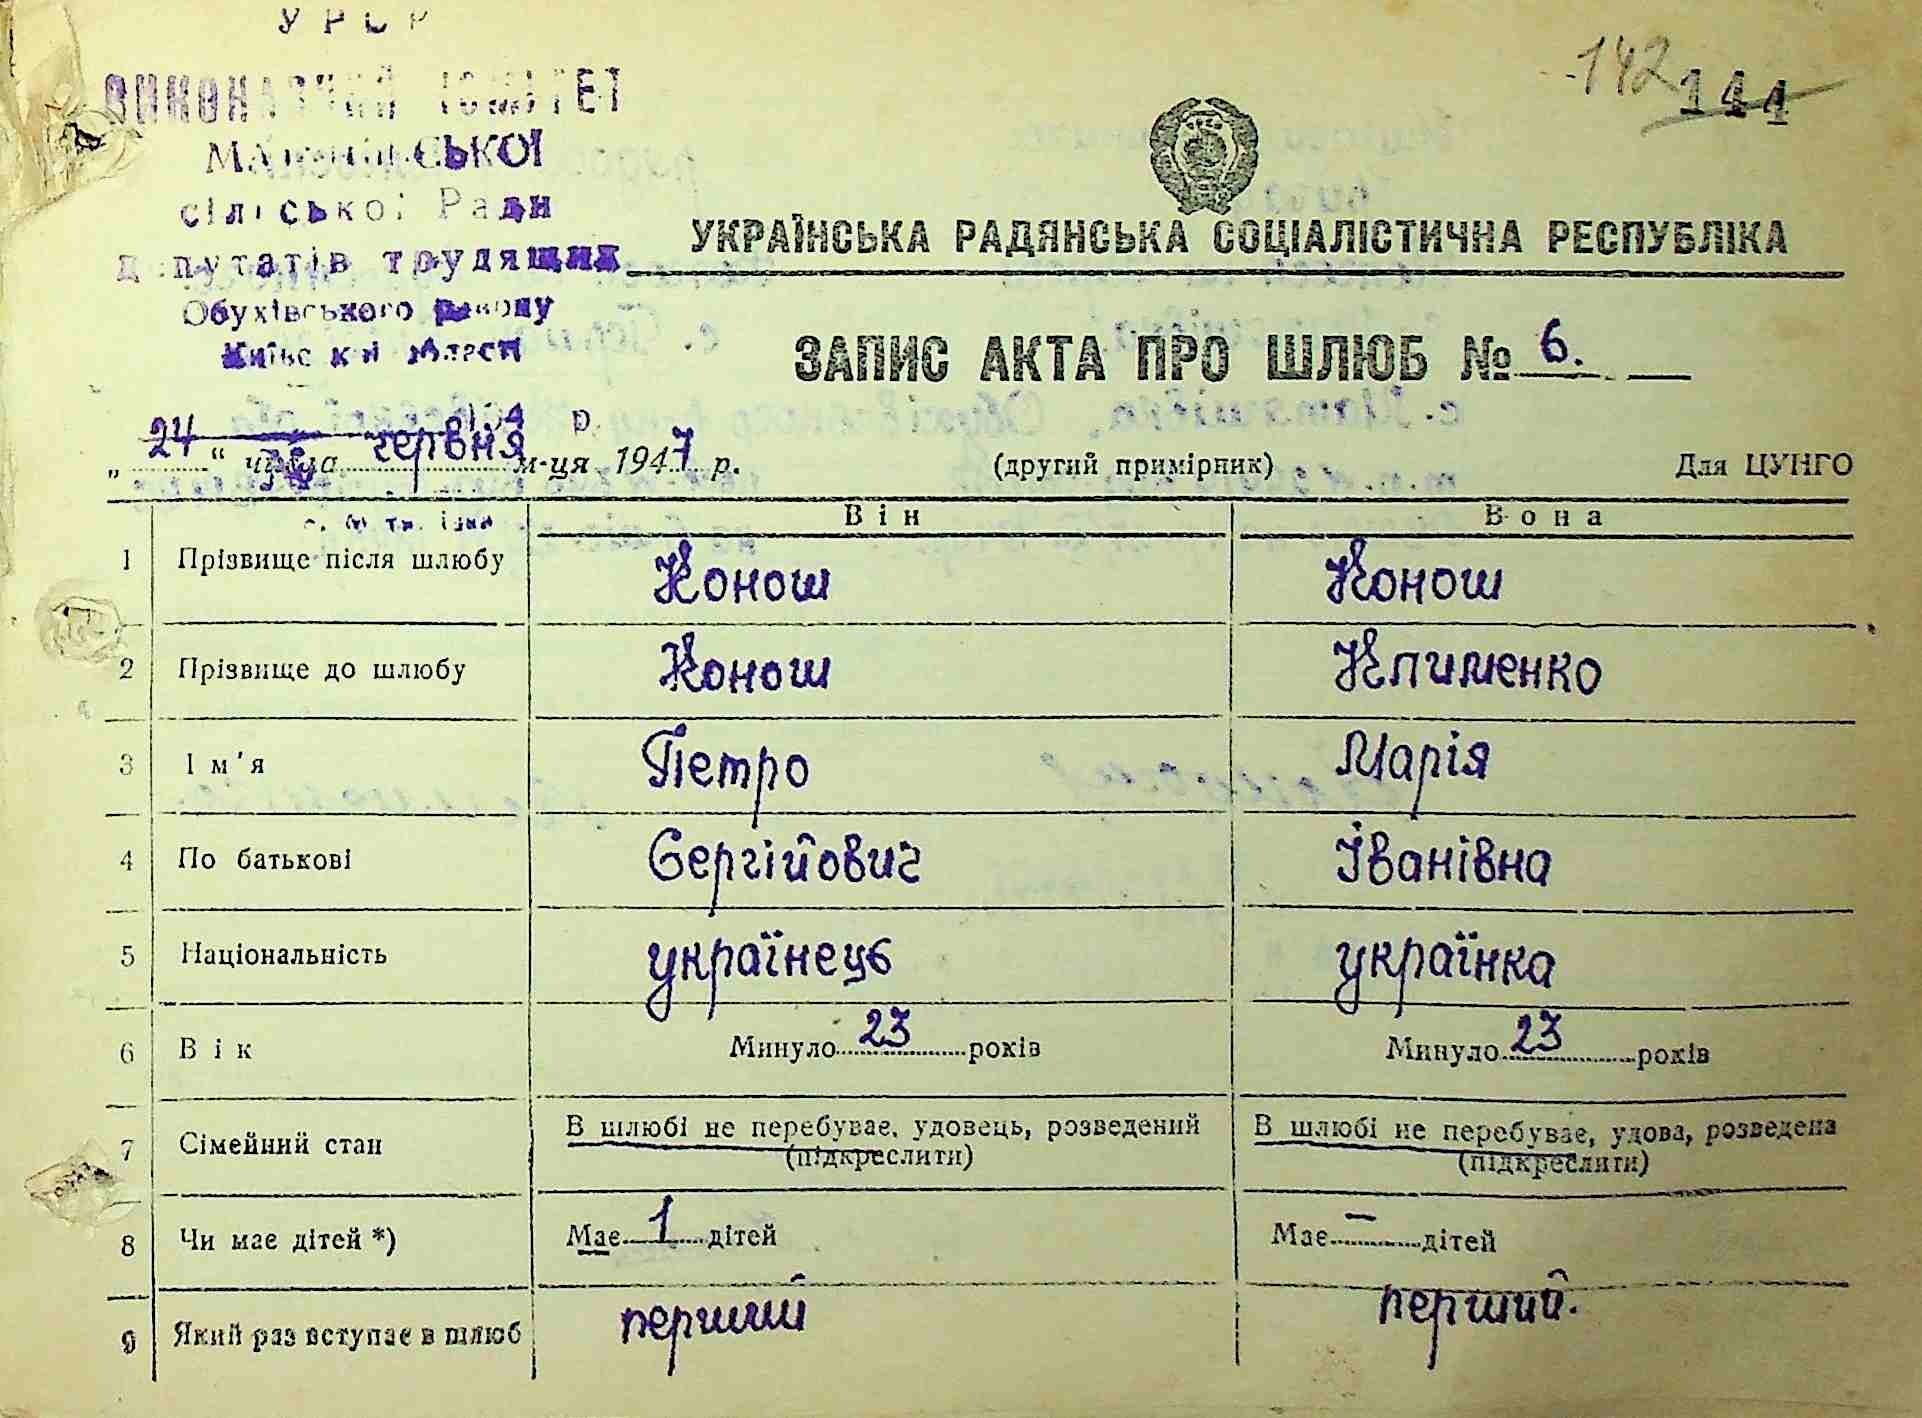 УРСР
ВИКОНАВЧИЙ КОМІТЕТ
сільської Ради
депутатів трудящих
Обухівського району
Київської області
194 р
142 144
УКРАЇНСЬКА РАДЯНСЬКА СОЦІАЛІСТИЧНА РЕСПУБЛІКА
ЗАПИС АКТА ПРО ШЛЮБ № 6.
„24“ числа червня м-ця 1947 р. (другий примірник) Для ЦУНГО
Він Вона
1 Прізвище після шлюбу Конош Конош
2 Прізвище до шлюбу Конош Клименко
3 Ім'я Петро Марія
4 По батькові Сергійович Іванівна
5 Національність українець українка
6 Вік Минуло 23 років Минуло 23 років
7 Сімейний стан В шлюбі не перебуває, удовець, розведений В шлюбі не перебуває, удова, розведена
(підкреслити) (підкреслити)
8 Чи має дітей *) Має 1 дітей Має – дітей
9 Який раз вступає в шлюб перший перший.